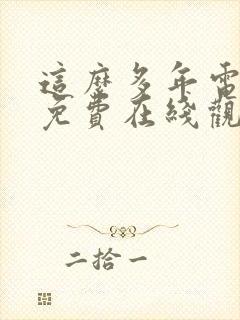 這麼多年電
免費在綫觀
二拾一